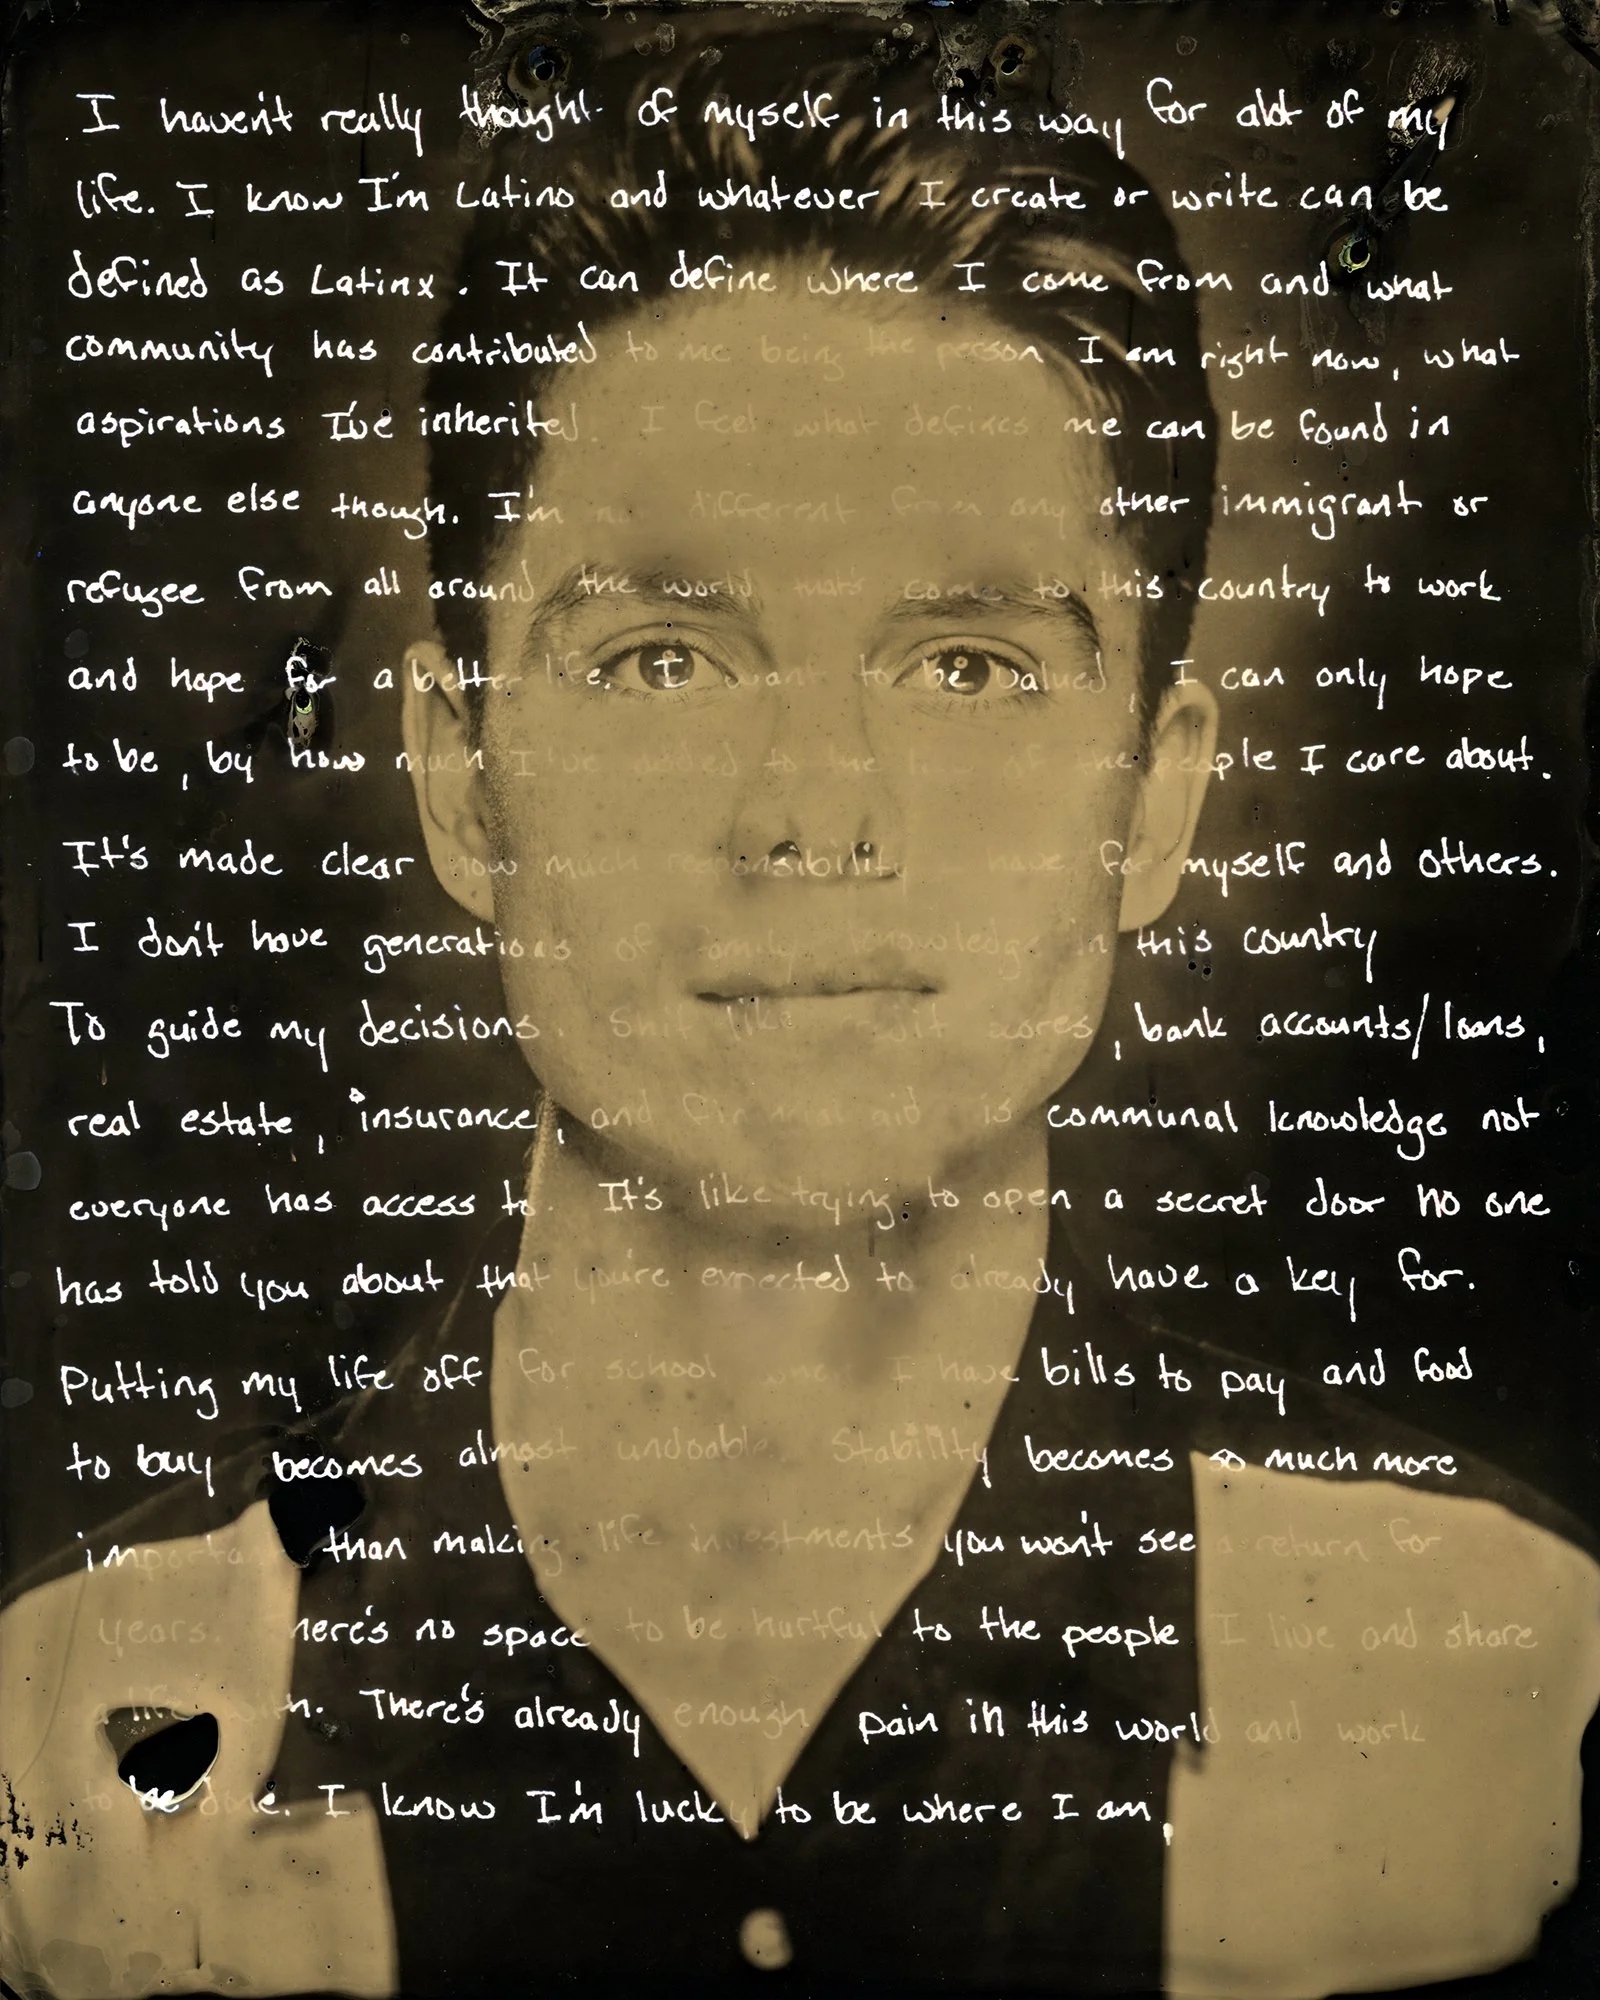 I haven't really thought of myself in this way for alot of my
life. I know I'm Latino and whatever I create or write can be
defined as Latinx. It can define where I come from and what
community has contributed to me being the person I am right now, what
aspirations I've inherited. I feel what defines me can be found in
anyone else though. I'm no different from any other immigrant or
refugee from all around the world that's come to this country to work
and hope for a better life. I want to be valued, I can only hope
to be, by how much I've added to the life of the people I care about.
It's made clear how much responsibility I have for myself and others.
I don't have generations of family knowledge in this country
To guide my decisions. Shit like , bank accounts/loans,
real estate, insurance, and financial aid is communal knowledge not
everyone has access to. It's like trying to open a secret door no one
has told you about that you're expected to already have a key for.
Putting my life off for school when I have bills to pay and food
to buy becomes almost undoable. Stability becomes so much more
important than making life investments you won't see a return for
years. There's no space to be hurtful to the people I live and share
a life with. There's already enough pain in this world and work
to be done. I know I'm lucky to be where I am.